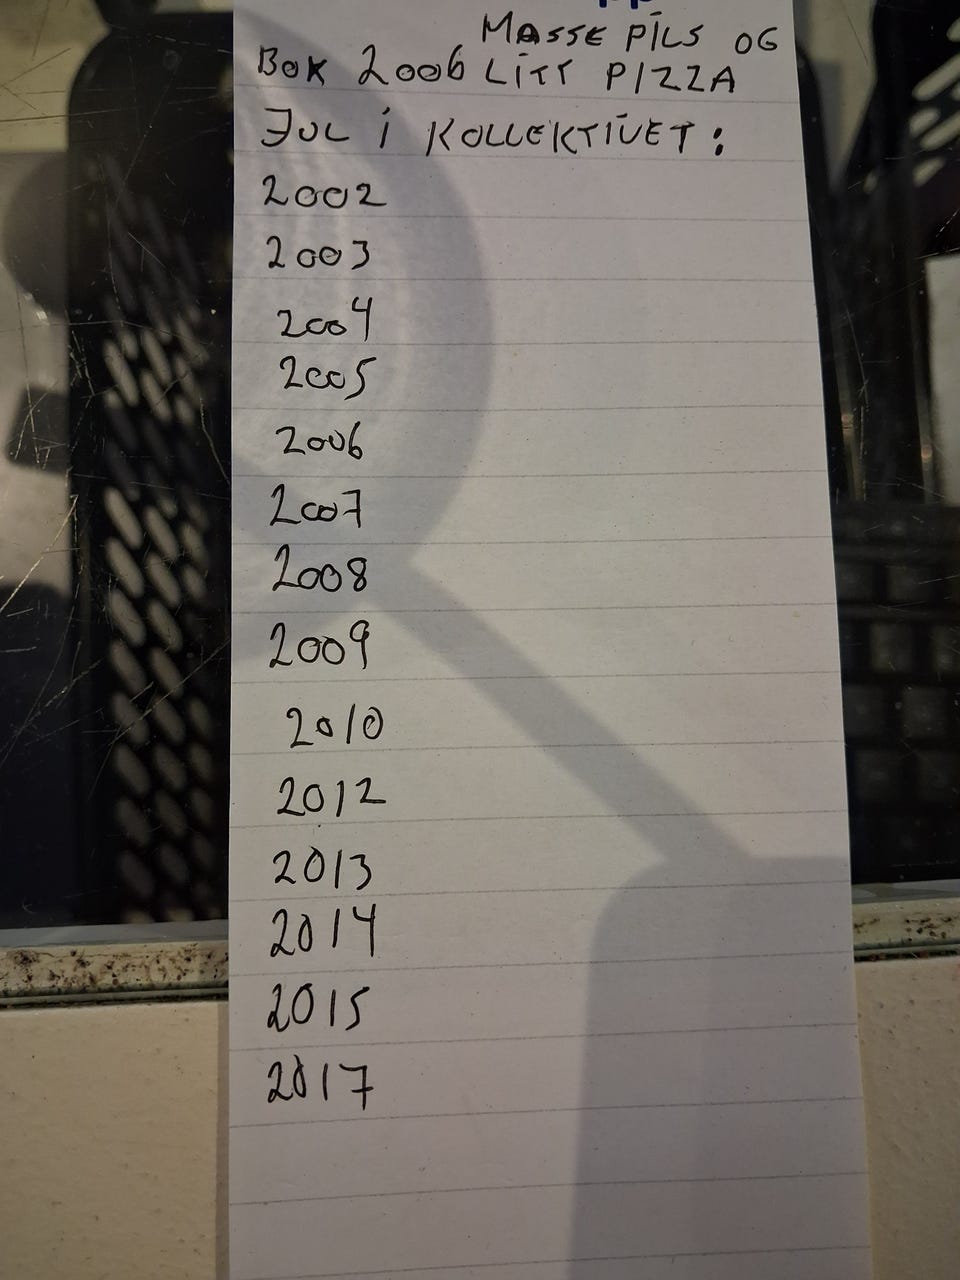 MASSE PILS OG
BOK 2006 LITT PIZZA
JUL I KOLLEKTIVET:
2002
2003
2004
2005
2006
2007
2008
2009
2010
2012
2013
2014
2015
2017